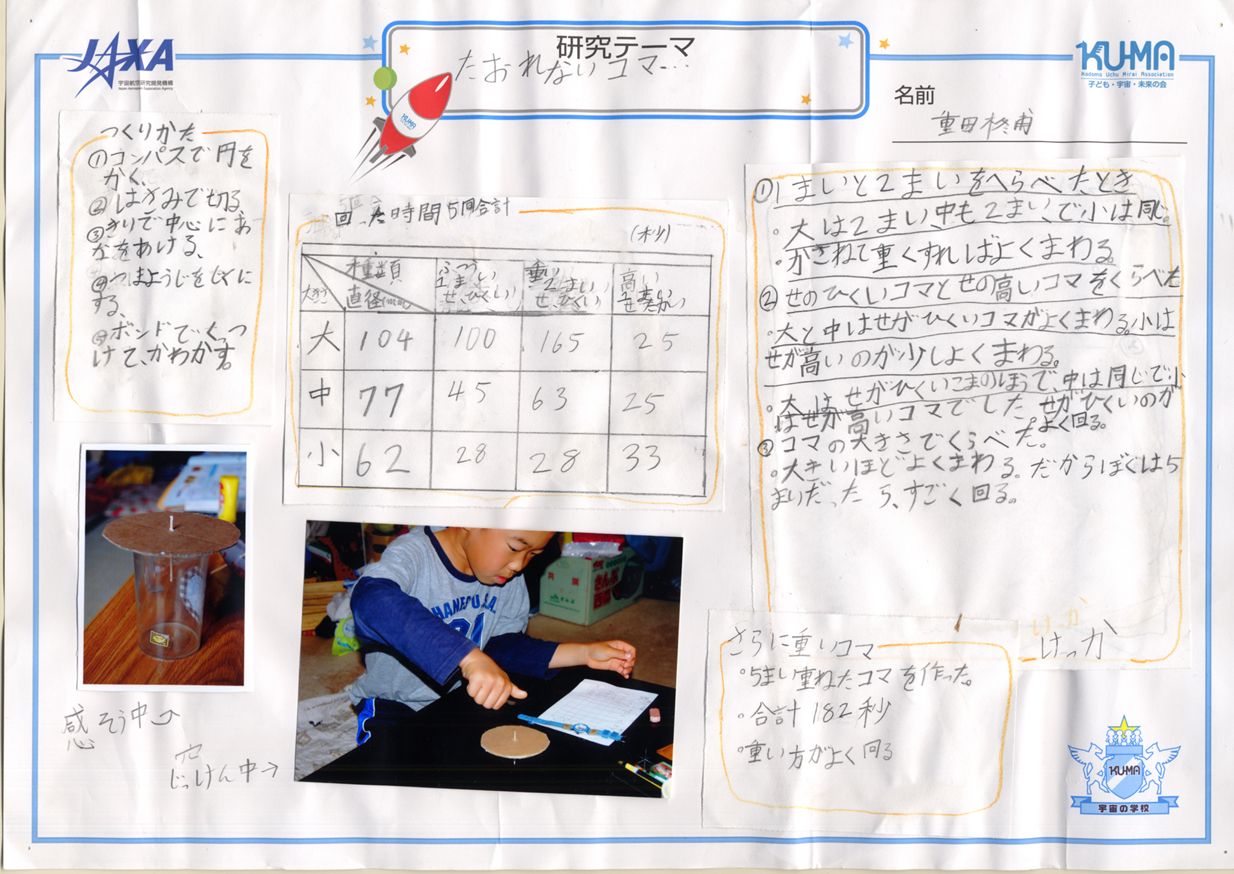 JAXA
宇宙航空研究開発機構
Japan Aerospace Exploration Agency
研究テーマ
たおれないコマ…
KUMA
KUMA
Kodomo Uchu Mirai Association
子ども・宇宙・未来の会
名前
重田柊甫
つくりかた
①コンパスで円を
かく、
②はさみで切る、
③きりで中心にあ
なをあける、
④つまようじを
する、
ボンドでくっつ
けて、かわかす。
回った時間5回合計
(秒)
種類
大きさ 直径(mm)
ふつう
1まい
せ、ひくい
重い
2まい
せ、ひくい
高い
せ、たかい
大 104 100 165 25
中 77 45 63 25
小 62 28 28 33
①1まいと2まいをくらべたとき
・大は2まい、中も2まい、で小は同じ。
・かさねて重くすればよくまわる。
②せのひくいコマとせの高いコマをくらべた
・大と中はせがひくいコマがよくまわる。小は
せが高いのが少しよくまわる。
・大はせがひくいこまのほうで、中は同じで小
はせが高いコマでした。せがひくいのが
よく回る。
③コマの大きさでくらべた。
・大きいほどよくまわる。だからぼくは5
まいだったら、すごく回る。
けっか
けっか
さらに重いコマ
・5まい重ねたコマを作った。
・合計182秒
・重い方がよく回る
感そう中→
じっけん中→
KU-MA
宇宙の学校